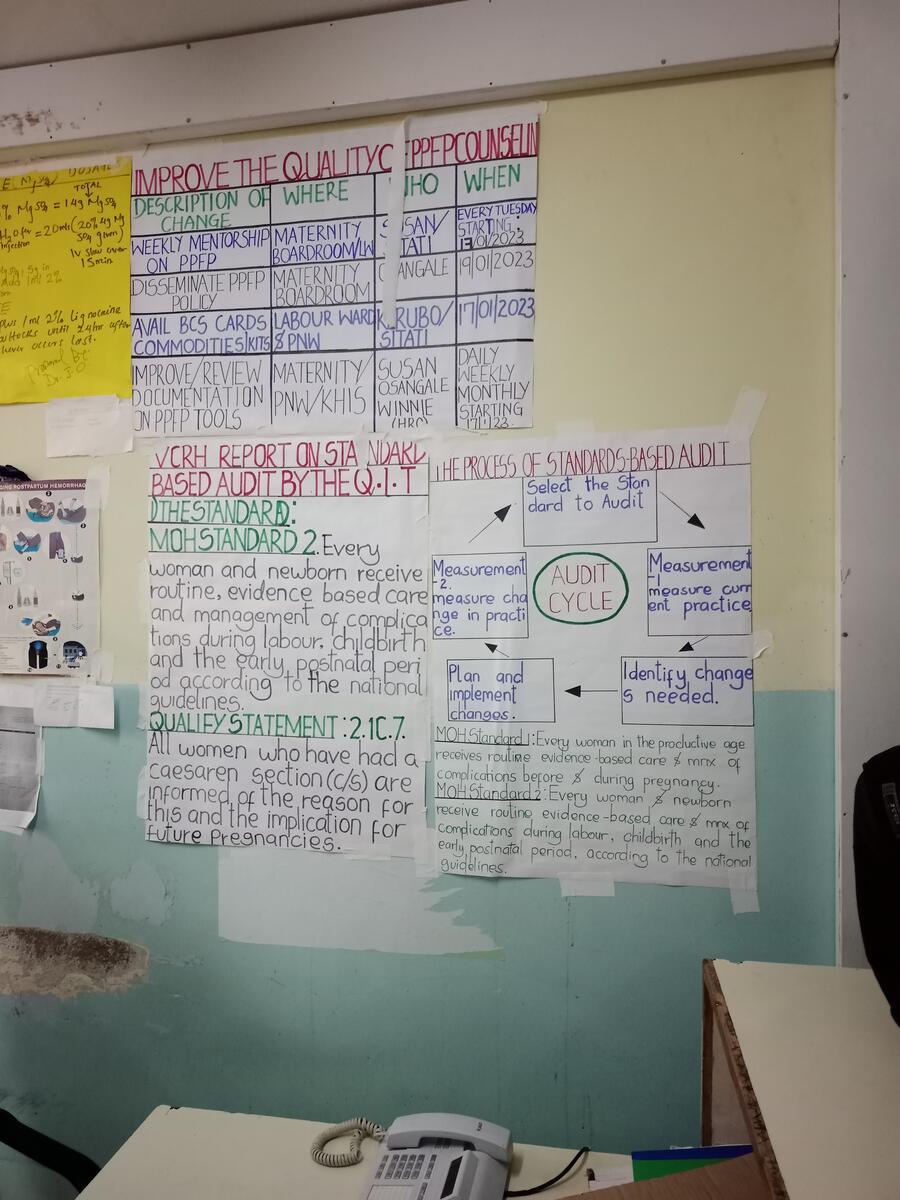 TOTAL
MgSO4 = 14g MgSO4
= 20mls (20% 4g Mg
SO4 given)
IV slow over
15min
plus 1ml 2% Lignocaine
buttocks until 24hr after
occurs last.
Dr. J.O
IMPROVE THE QUALITY OF PPFP COUNSELIN
DESCRIPTION OF CHANGE
WHERE
WHO
WHEN
WEEKLY MENTORSHIP ON PPFP
MATERNITY BOARDROOM/LW
SUSAN/ SITATI
EVERY TUESDAY STARTING 17/01/2023
DISSEMINATE PPFP POLICY
MATERNITY BOARDROOM
OSANGALE
19/01/2023
AVAIL BCS CARDS COMMODITIES/KITS
LABOUR WARD & PNW
KARUBO/ SITATI
17/01/2023
IMPROVE/REVIEW DOCUMENTATION ON PPFP TOOLS
MATERNITY/ PNW/KHIS
SUSAN OSANGALE WINNIE (HRO)
DAILY WEEKLY MONTHLY STARTING 17/1/23
VCRH REPORT ON STANDARD
BASED AUDIT BY THE Q.I.T
1) THE STANDARD:
MOH STANDARD 2. Every
woman and newborn receive
routine, evidence based care
and management of complica
tions during labour, childbirth
and the early postnatal peri
od according to the national
guidelines.
QUALIFY STATEMENT: 2.1C.7.
All women who have had a
caesaren section (c/s) are
informed of the reason for
this and the implication for
future pregnancies.
THE PROCESS OF STANDARDS-BASED AUDIT
Select the Stan
dard to Audit
Measurement
-1
measure curr
ent practice
Identify change
s needed.
Plan and
implement
changes.
Measurement
-2.
measure cha
nge in practi
ce.
AUDIT
CYCLE
MOH Standard 1: Every woman in the productive age
receives routine evidence-based care & mnx of
complications before & during pregnancy.
MOH Standard 2: Every woman & newborn
receive routine evidence-based care & mnx of
complications during labour, childbirth and the
early postnatal period, according to the national
guidelines.
POSTPARTUM HEMORRHAG